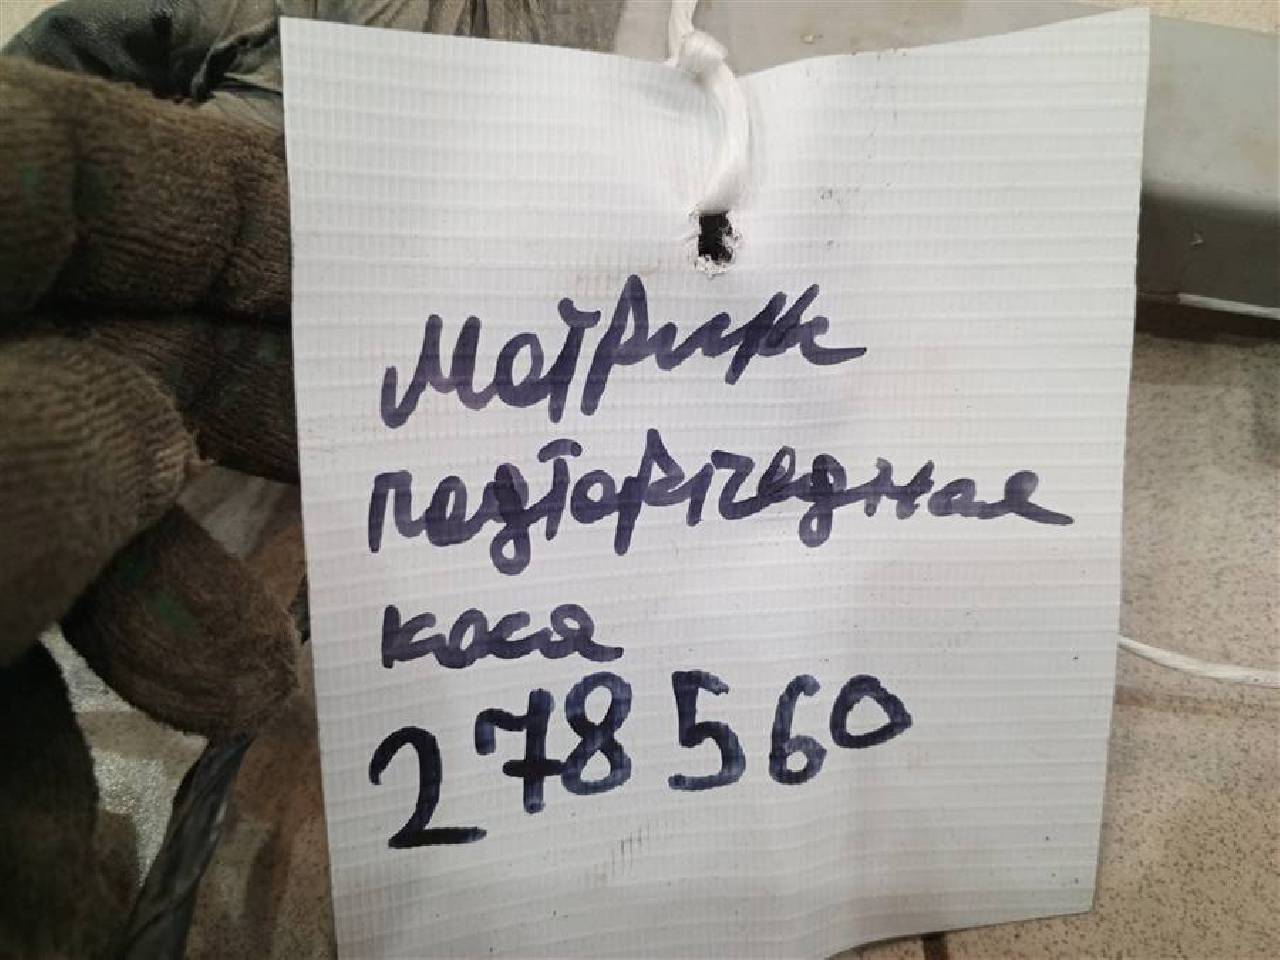 Матрикс
подторпедная
коса
278560